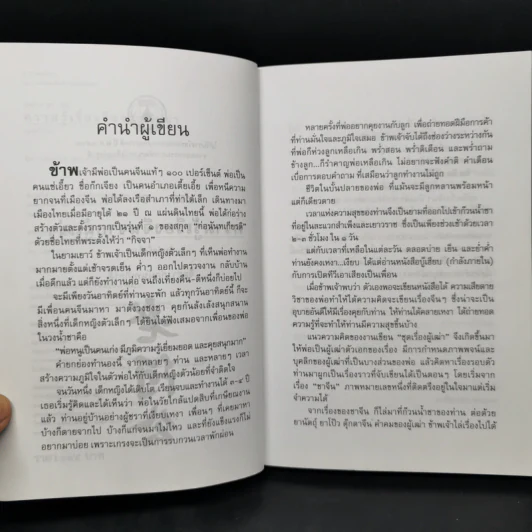 คำนำผู้เขียน
ข้าพเจ้ามีพ่อเป็นคนจีนแท้ๆ ๑๐๐ เปอร์เซ็นต์ พ่อเป็น
คนแซ่เอี้ยว ชื่อกักเจียง เป็นคนอำเภอเตี้ยเอี้ย เพื่อหนีความ
ยากจนที่เมืองจีน พ่อได้ลงเรือสำเภาที่ท่าใต้เล็ก เดินทางมา
เมืองไทยเมื่อมีอายุได้ ๒๑ ปี ณ แผ่นดินไทยนี้ พ่อได้ก่อร่าง
สร้างตัวและตั้งรกรากเป็นรุ่นที่ ๑ ของสกุล "ก่อนันทเกียรติ"
ด้วยชื่อไทยที่พระตั้งให้ว่า "กิจจา"
ในยามเยาว์ ข้าพเจ้าเป็นเด็กหญิงตัวเล็กๆ ที่เห็นพ่อทำงาน
มากมายตั้งแต่เช้าจรดเย็น ค่ำๆ ออกไปตรวจงาน กลับบ้าน
เมื่อดึกแล้ว แต่ก็ยังทำงานต่อ จนถึงเที่ยงคืน-ตีหนึ่งก็บ่อยไป
จะมีเพียงวันอาทิตย์ที่ท่านจะพัก แล้วทุกวันอาทิตย์นี้ ก็จะ
มีเพื่อนคนจีนมาหา มาตั้งวงชงชา คุยกันลั่งเล้งสนุกสนาน
สิ่งหนึ่งที่เด็กหญิงตัวเล็กๆ ได้ยินได้ฟังเสมอจากเพื่อนของพ่อ
ในวงน้ำชาคือ
"พ่อหนูเป็นคนเก่ง มีภูมิความรู้เยี่ยมยอด และคุยสนุกมาก"
คำยกย่องทำนองนี้ จากหลายๆ ท่าน และหลายๆ เวลา
สร้างความภูมิใจในตัวพ่อให้กับเด็กหญิงตัวน้อยที่จำติดใจ
จนวันหนึ่ง เด็กหญิงได้เติบโต เรียนจบและทำงานได้ ๓-๔ ปี
เธอเริ่มรู้คิดและได้เห็นว่า พ่อในวัยใกล้แปดสิบที่เกษียณงาน
แล้ว ท่านอยู่บ้านอย่างผู้ชราที่เงียบเหงา เพื่อนๆ ที่เคยมาหา
บ้างก็ตายจากไป บ้างก็แก่จนมาไม่ไหว และที่ยังแข็งแรงก็ไม่
อยากมาบ่อย เพราะเกรงจะเป็นการรบกวนเวลาพักผ่อน
หลายครั้งที่พ่ออยากคุยงานกับลูก เพื่อถ่ายทอดฝีมือการค้า
ที่ท่านมั่นใจและภูมิใจเสมอ ข้าพเจ้าจับได้ถึงช่องว่างระหว่างกัน
ที่พ่อก็ห่วงลูกเหลือเกิน พร่ำสอน พร่ำติเตือน และพร่ำถาม
ข้างลูก...ก็รำคาญพ่อเหลือเกิน ไม่อยากจะฟังคำติ คำเตือน
เบื่อการตอบคำถาม ที่เสมือนว่าลูกทำงานไม่ถูก
ชีวิตในบั้นปลายของพ่อ ที่แม้นจะมีลูกหลานพร้อมหน้า
แต่ก็เดียวดาย
เวลาแห่งความสุขของท่านจึงเป็นยามที่ออกไปเช้าก๊วนน้ำชา
ที่อยู่ในละแวกสำเพ็งและเยาวราช ซึ่งเป็นเพียงช่วงเช้าด้วยเวลา
๒-๓ ชั่วโมง ใน ๑ วัน
แต่กับเวลาที่เหลือในแต่ละวัน ตลอดบ่าย เย็น และย่ำค่ำ
ท่านยังคงเหงา...เงียบ ได้แต่อ่านหนังสือบู๊เฮียบ (กำลังภายใน)
กับการเปิดทีวีเอาเสียงเป็นเพื่อน
เมื่อข้าพเจ้าพบว่า ตัวเองพอจะเขียนหนังสือได้ ความเสียดาย
วิชาของพ่อทำให้ได้ความคิดจะเขียนเรื่องจีนๆ ซึ่งน่าจะเป็น
อุบายอันดีให้มีเรื่องคุยกับท่าน ให้ท่านได้คลายเหงา ได้ถ่ายทอด
ความรู้ที่จะทำให้ท่านมีความสุขขึ้นบ้าง
แนวความคิดของงานเขียน "ชุดเรื่องผู้เฒ่า" จึงเกิดขึ้นมา
ให้พ่อเป็นผู้เฒ่าตัวเอกของเรื่อง มีการกำหนดภาพพจน์และ
บุคลิกของผู้เฒ่าที่เป็นบางส่วนของพ่อ แล้วคิดหาเรื่องรอบตัว
ท่านมาผูกเป็นเรื่องราวที่จับเขียนได้เป็นตอนๆ โดยเริ่มจาก
เรื่อง "ชาจีน" ภาพหมายเลขหนึ่งที่ติดตรึงอยู่ในใจมาแต่เริ่ม
จำความได้
จากเรื่องของชาจีน ก็ไล่มาที่ก๊วนน้ำชาของท่าน ต่อด้วย
ยานัตถุ์ ยาโป๊ว ตุ๊กตาจีน คำคมของผู้เฒ่า ข้าพเจ้าไล่เรื่องไปได้